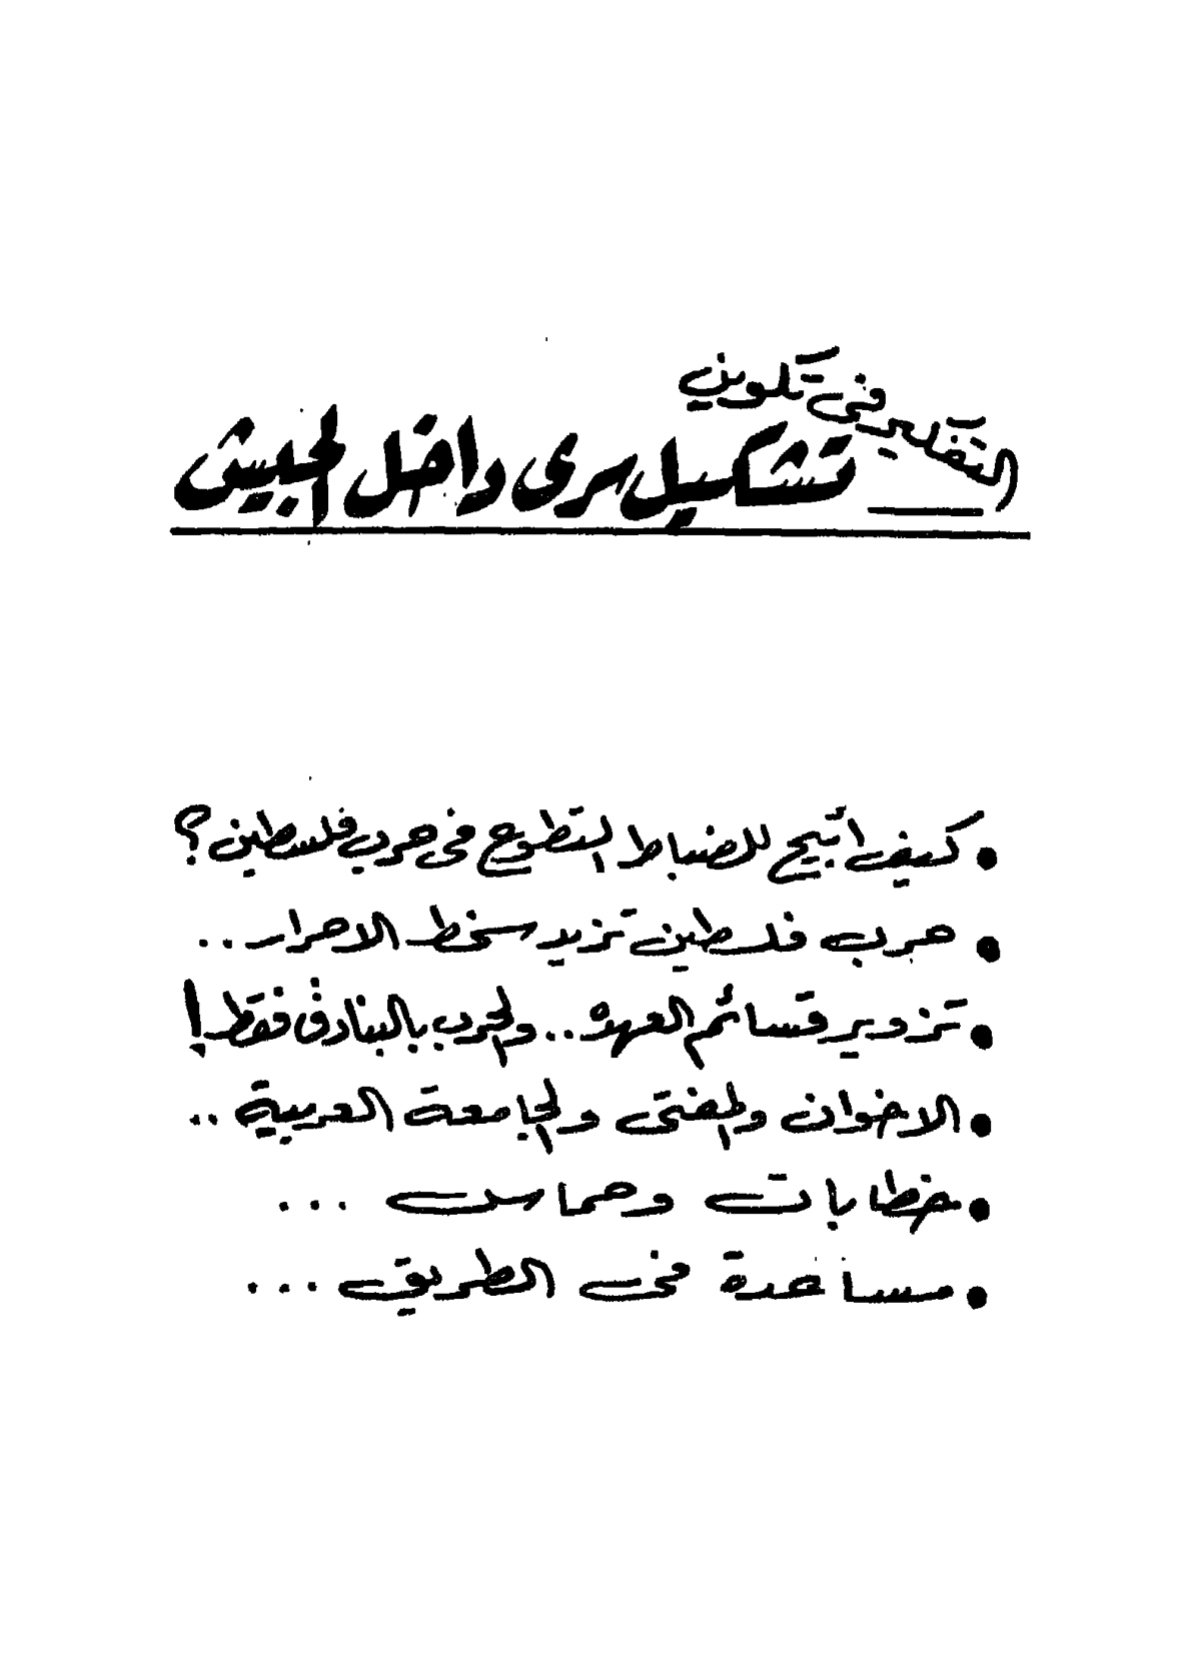 التفكير فى تكوين
تشكيل سرى داخل الجيش
• كيف أتيح للضباط التطوع فى حرب فلسطين؟
• حرب فلسطين تزيد سخط الاحرار ..
• تزوير قسائم العهدة .. والحرب بالبنادق فقط!
• الاخوان والمفتى والجامعة العربية ..
• خطابات وحماس ...
• مساعدة فى الطريق ...